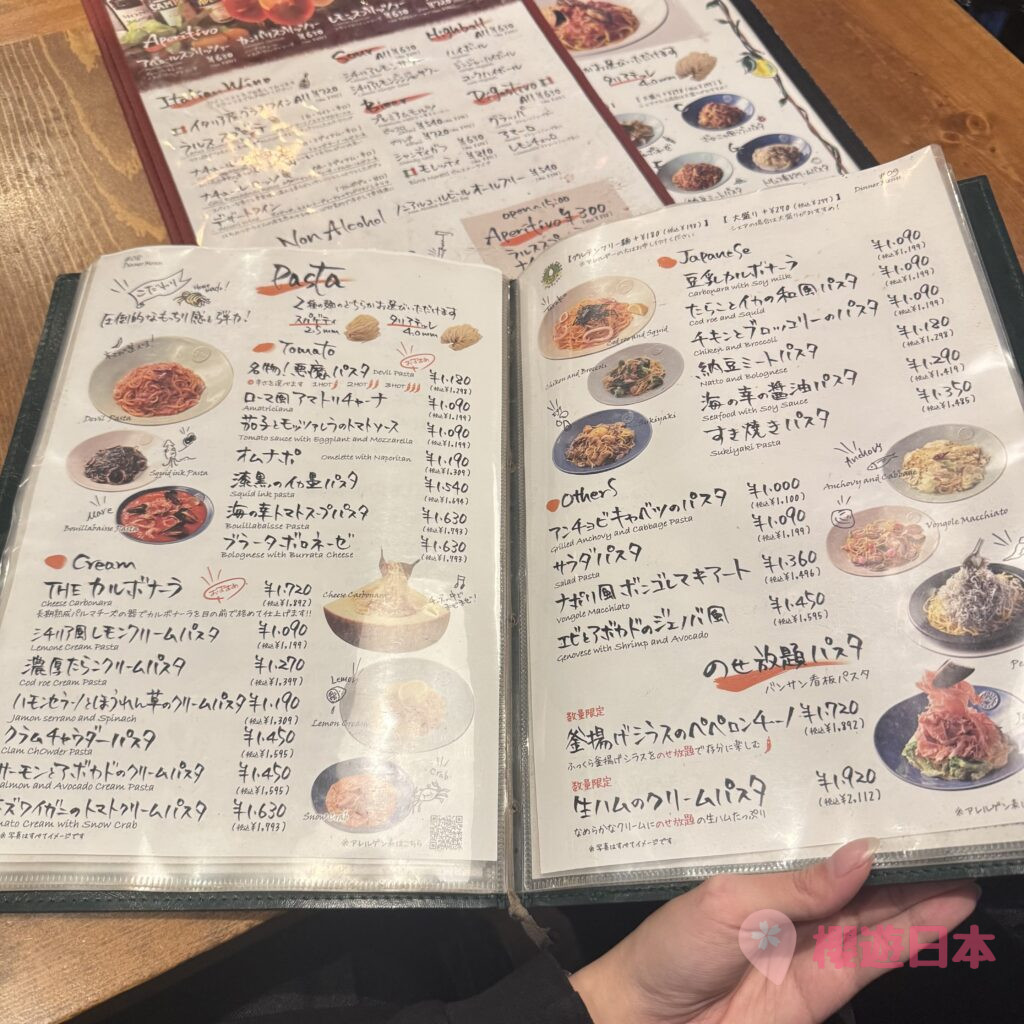 Aperitivo
Sour
All ¥630
Highball
All ¥630
ハイボール
コークハイボール
Italian Wine
All ¥720
Beer
Digestivo
グラッパ
レモンチェッロ
モレッティ
デザートワイン
Non Alcohol
ノンアルコールビール オールフリー ¥540
open-15:00
Aperitivo ¥300
タリアテッレ
4.0mm
#08
Dinner Menu
こだわり
Home made!
圧倒的なもっちり感&弾力!
Pasta
2種の麺のどちらかお選びいただけます
スパゲティ
2.5mm
タリアテッレ
4.0mm
Tomato
オススメ
名物!悪魔パスタ Devil Pasta ¥1.180
辛さを選べます 1.HOT 2.HOT 3.HOT (税込¥1,298)
ローマ風アマトリチャーナ ¥1.090
Amatriciana (税込¥1,199)
茄子とモッツァレラのトマトソース ¥1.090
Tomato sauce with Eggplant and Mozzarella (税込¥1,199)
オムナポ Omelette with Naporitan ¥1.190
(税込¥1,309)
漆黒のイカ墨パスタ ¥1.540
Squid ink pasta (税込¥1,694)
海の幸トマトスープパスタ ¥1.630
Bouillabaisse Pasta (税込¥1,793)
ブラータボロネーゼ ¥1.630
Bolognese with Burrata Cheese (税込¥1,793)
Devil Pasta
Squid ink Pasta
Bouillabaisse Pasta
Cream
THE カルボナーラ オススメ ¥1.720
Cheese Carbonara (税込¥1,892)
長期熟成パルマチーズの器でカルボナーラを目の前で絡めて仕上げます!!
シチリア風レモンクリームパスタ ¥1.090
Lemone Cream Pasta (税込¥1,199)
濃厚たらこクリームパスタ ¥1.270
Cod roe Cream Pasta (税込¥1,397)
ハモンセラーノとほうれん草のクリームパスタ ¥1.190
Jamon serrano and Spinach (税込¥1,309)
クラムチャウダーパスタ ¥1.450
Clam ChOwder Pasta (税込¥1,595)
サーモンとアボカドのクリームパスタ ¥1.450
almon and Avocado Cream Pasta (税込¥1,595)
ズワイガニのトマトクリームパスタ ¥1.630
mato Cream with Snow Crab (税込¥1,793)
※写真はすべてイメージです
Cheese Carbonara
Lemon
Lemon Cream
Crab
Snow Crab
※アレルゲン表はこちら
#09
Dinner Menu
【グルテンフリー麺+¥180(税込¥198)】 【大盛り+¥270(税込¥297)】
※アレルギーの方はお申し付けください シェアの場合は大盛りがおすすめ!
Japanese
豆乳カルボナーラ ¥1.090
Carbonara with Soy milk (税込¥1,199)
たらことイカの和風パスタ ¥1.090
Cod roe and Squild (税込¥1,199)
チキンとブロッコリーのパスタ ¥1.090
Chiken and Broccoli (税込¥1,199)
納豆ミートパスタ ¥1.180
Natto and Bolognese (税込¥1,298)
海の幸の醤油パスタ ¥1.290
Seafood with Soy Sauce (税込¥1,419)
すき焼きパスタ ¥1.350
Sukiyaki Pasta (税込¥1,485)
Tarako
Cod roe and Squid
Chiken and Broccoli
Sukiyaki
Others
アンチョビキャベツのパスタ ¥1.000
Grilled Anchovy and Cabbage Pasta (税込¥1,100)
サラダパスタ ¥1.090
Salad Pasta (税込¥1,199)
ナポリ風ボンゴレマキアート ¥1.360
Vongole Macchiato (税込¥1,496)
エビとアボカドのジェノバ風 ¥1.450
Genovese with Shrimp and Avocado (税込¥1,595)
Anchovy
Anchovy and Cabbage
Vongole Macchiato
のせ放題パスタ
バンサン看板パスタ
数量限定
釜揚げシラスのペペロンチーノ ¥1.720
ふっくら釜揚げシラスをのせ放題で存分に楽しむ (税込¥1,892)
数量限定
生ハムのクリームパスタ ¥1.920
なめらかなクリームにのせ放題の生ハムたっぷり (税込¥2,112)
※写真はすべてイメージです
櫻遊日本